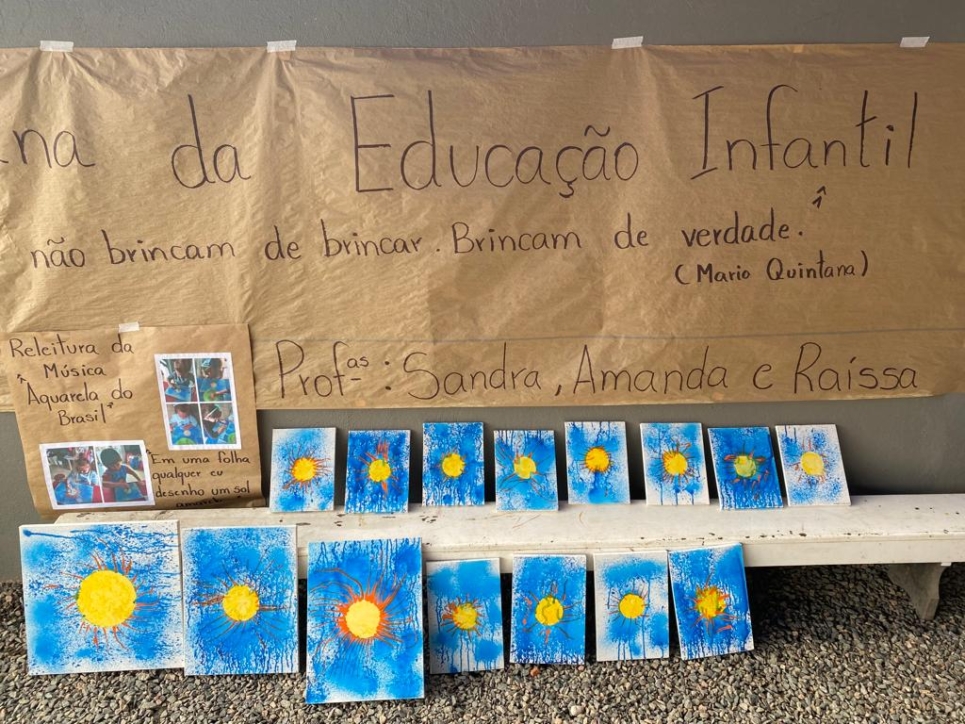 na da Educação Infantil
não brincam de brincar. Brincam de verdade.
(Mario Quintana)
Profas: Sandra, Amanda e Raíssa
Releitura da
Música
"Aquarela do
Brasil"
"Em uma folha
qualquer eu
desenho um sol